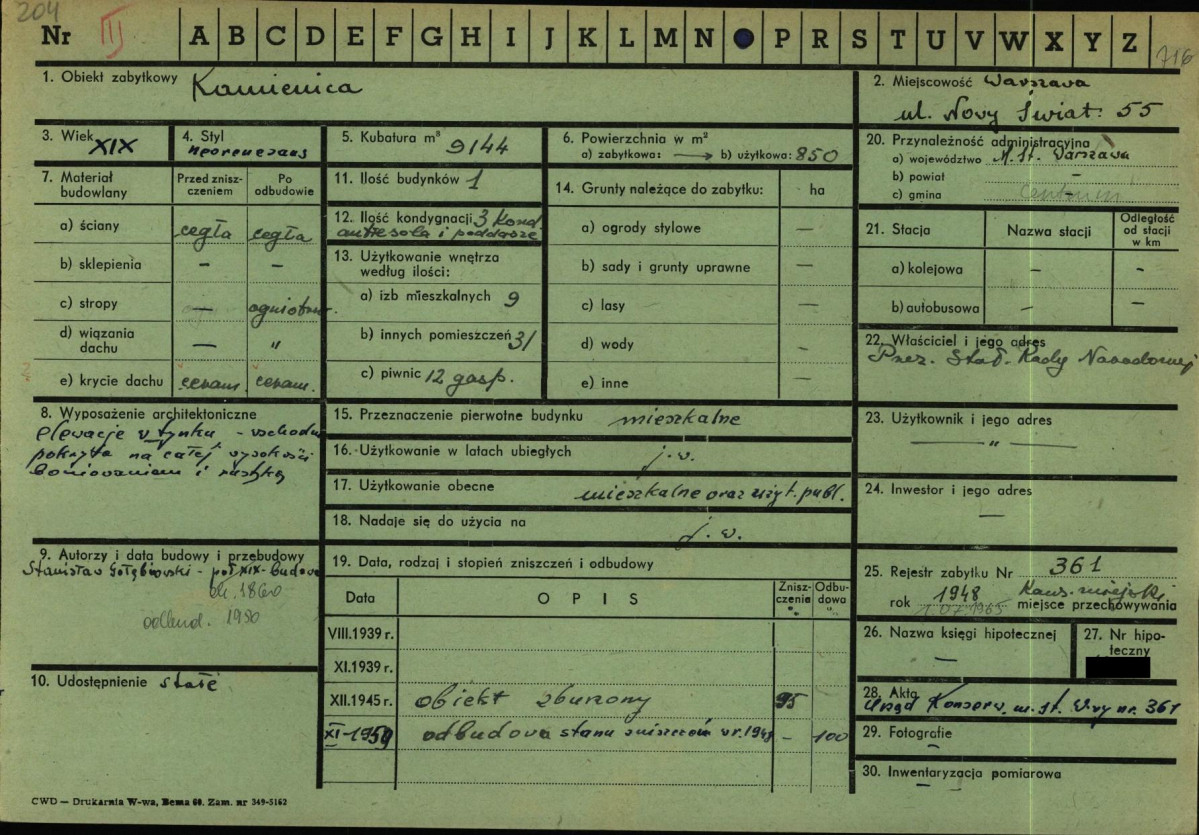 204
Nr III A B C D E F G H I J K L M N P R S T U V W X Y Z
716
1. Obiekt zabytkowy Kamienica
2. Miejscowość Warszawa
ul. Nowy Świat 55
3. Wiek XIX
4. Styl neorenesans
5. Kubatura m³ 9144
6. Powierzchnia w m²
a) zabytkowa: → b) użytkowa: 850
20. Przynależność administracyjna
a) województwo M. St. Warszawa
b) powiat —
c) gmina Centrum
7. Materiał budowlany
Przed zniszczeniem
Po odbudowie
a) ściany cegła cegła
b) sklepienia — —
c) stropy — ogniotrw.
d) wiązania dachu — "
e) krycie dachu ceram. ceram.
11. Ilość budynków 1
12. Ilość kondygnacji 3 kond.
antresola i poddasze
13. Użytkowanie wnętrza
według ilości:
a) izb mieszkalnych 9
b) innych pomieszczeń 31
c) piwnic 12 gosp.
14. Grunty należące do zabytku: ha
a) ogrody stylowe —
b) sady i grunty uprawne —
c) lasy —
d) wody —
e) inne —
21. Stacja Nazwa stacji
Odległość
od stacji
w km
a) kolejowa — —
b) autobusowa — —
22. Właściciel i jego adres
Prez. Stoł. Rady Narodowej
8. Wyposażenie architektoniczne
elewacje w tynku - wschodu
pokryta na całej wysokości
boniowaniem i rustyką
15. Przeznaczenie pierwotne budynku mieszkalne
16. Użytkowanie w latach ubiegłych j. w.
17. Użytkowanie obecne mieszkalne oraz użyt. publ.
18. Nadaje się do użycia na j. w.
23. Użytkownik i jego adres
— " —
24. Inwestor i jego adres
—
9. Autorzy i data budowy i przebudowy
Stanisław Gołębiowski - poł. XIX - budowa
ok. 1860
odbud. 1950
19. Data, rodzaj i stopień zniszczeń i odbudowy
Data OPIS
Zniszczenie %
Odbudowa %
VIII.1939 r.
XI.1939 r.
XII.1945 r. obiekt zburzony 95
XI-1959 odbudowa stanu zniszczeń w r. 1949 — 100
25. Rejestr zabytku Nr 361
rok 1948 Kons. miejski
1.07.1965 miejsce przechowywania
26. Nazwa księgi hipotecznej
—
27. Nr hipoteczny
10. Udostępnienie stałe
28. Akta
Urząd Konserw. m. st. W-wy nr. 361
29. Fotografie
—
30. Inwentaryzacja pomiarowa
—
CWD — Drukarnia W-wa, Bema 60. Zam. nr 349-5162